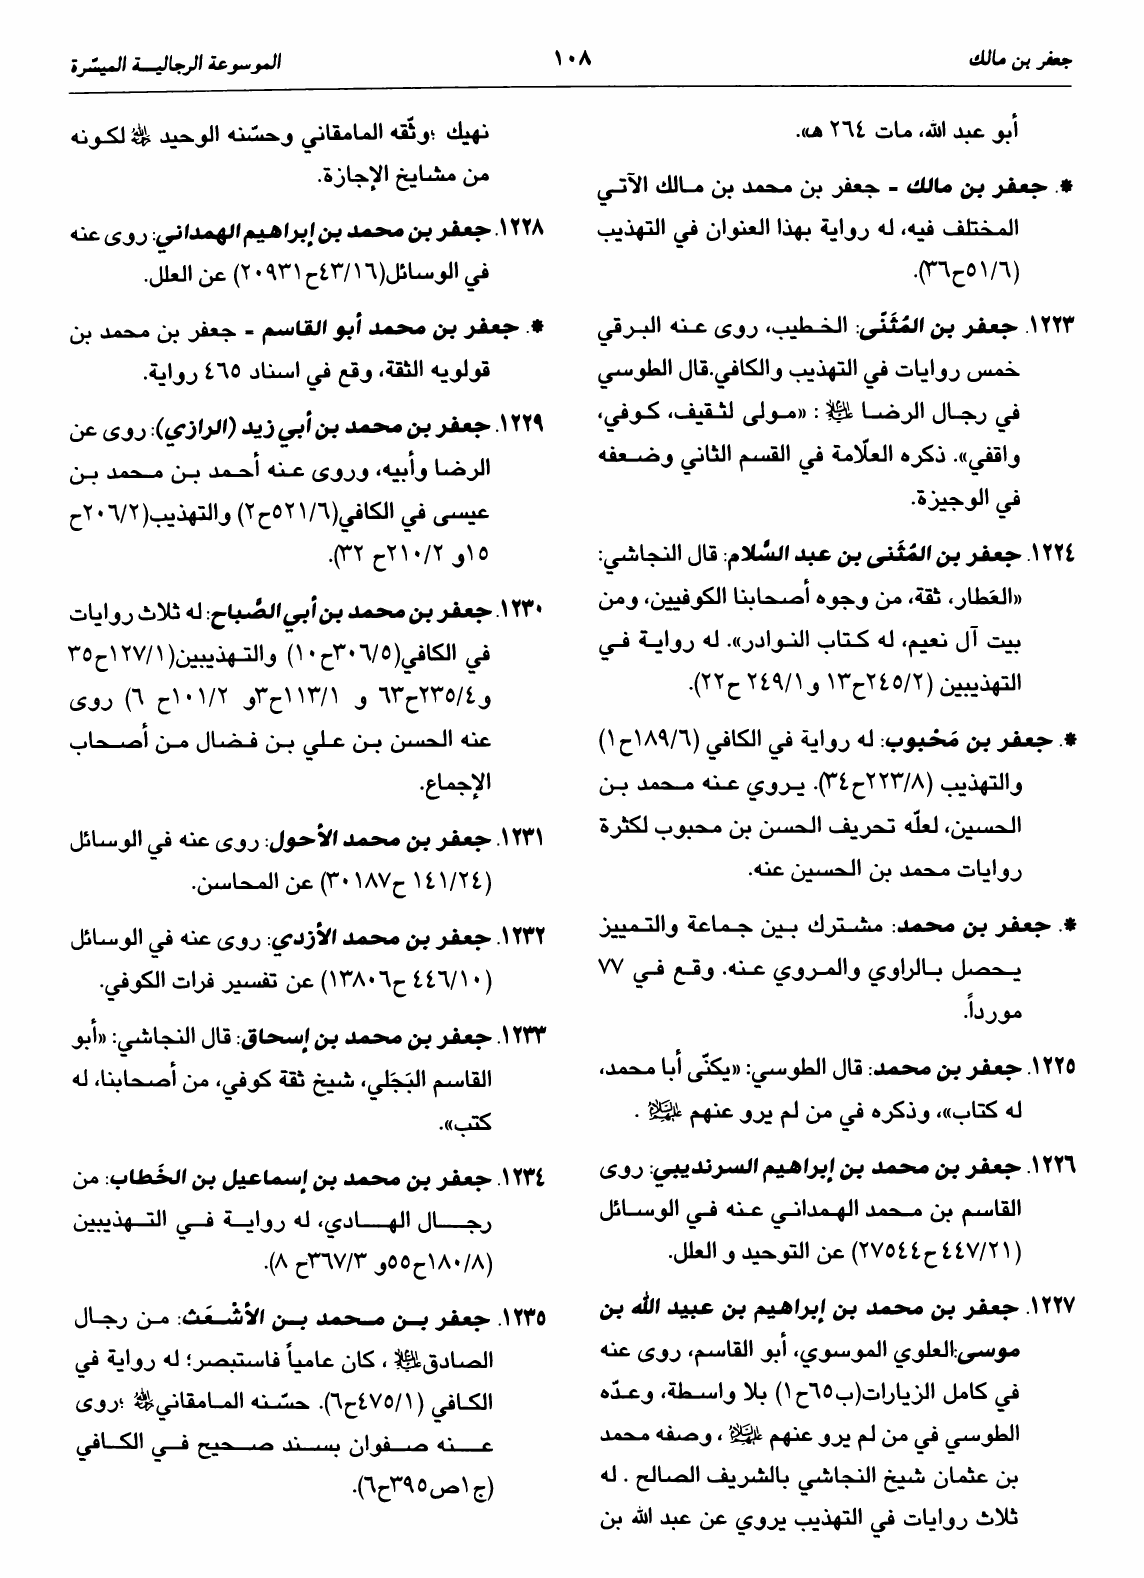 جعفر بن مالك
١٠٨
الموسوعة الرجالية الميسّرة
أبو عبد الله، مات ٢٦٤ هـ».
*. جعفر بن مالك - جعفر بن محمد بن مالك الآتي
المختلف فيه، له رواية بهذا العنوان في التهذيب
(٥١/٦ح٣٦).
١٢٢٣. جعفر بن المُثَنّى: الخطيب، روى عنه البرقي
خمس روايات في التهذيب والكافي.قال الطوسي
في رجال الرضا ﵇ : «مولى لثقيف، كوفي،
واقفي». ذكره العلّامة في القسم الثاني وضعفه
في الوجيزة.
١٢٢٤. جعفر بن المُثَنى بن عبد السَّلام: قال النجاشي:
«العَطار، ثقة، من وجوه أصحابنا الكوفيين، ومن
بيت آل نعيم، له كتاب النوادر». له رواية في
التهذيبين (٢٤٥/٢ح١٣ و٢٤٩/١ ح٢٢).
*. جعفر بن مَحْبوب: له رواية في الكافي (١٨٩/٦ح١)
والتهذيب (٢٢٣/٨ح٣٤). يروي عنه محمد بن
الحسين، لعلّه تحريف الحسن بن محبوب لكثرة
روايات محمد بن الحسين عنه.
*. جعفر بن محمد: مشترك بين جماعة والتمييز
يحصل بالراوي والمروي عنه. وقع في ٧٧
مورداً.
١٢٢٥. جعفر بن محمد: قال الطوسي: «يكنّى أبا محمد،
له كتاب»، وذكره في من لم يرو عنهم .
١٢٢٦. جعفر بن محمد بن إبراهيم السرنديبي: روى
القاسم بن محمد الهمداني عنه في الوسائل
(٤٤٧/٢١ ح٢٧٥٤٤) عن التوحيد و العلل.
١٢٢٧. جعفر بن محمد بن إبراهيم بن عبيد الله بن
موسى:العلوي الموسوي، أبو القاسم، روى عنه
في كامل الزيارات(ب٦٥ح١) بلا واسطة، وعدّه
الطوسي في من لم يرو عنهم ، وصفه محمد
بن عثمان شيخ النجاشي بالشريف الصالح . له
ثلاث روايات في التهذيب يروي عن عبد الله بن
نهيك ؛وثّقه المامقاني وحسّنه الوحيد لكونه
من مشايخ الإجازة.
١٢٢٨. جعفر بن محمد بن إبراهيم الهمداني: روى عنه
في الوسائل(٤٣/١٦ح٢٠٩٣١) عن العلل.
*. جعفر بن محمد أبو القاسم - جعفر بن محمد بن
قولويه الثقة، وقع في اسناد ٤٦٥ رواية.
١٢٢٩. جعفر بن محمد بن أبي زيد (الرازي): روى عن
الرضا وأبيه، وروى عنه أحمد بن محمد بن
عيسى في الكافي(٥٢١/٦ح٢) والتهذيب(٢٠٦/٢ح
١٥و ٢١٠/٢ح ٣٢).
١٢٣٠. جعفر بن محمد بن أبي الصَّباح: له ثلاث روايات
في الكافي(٣٠٦/٥ح١٠) والتهذيبين(١٢٧/١ح٣٥
و٢٣٥/٤ح٦٣ و ١١٣/١ح٣و ١٠١/٢ح ٦) روى
عنه الحسن بن علي بن فضال من أصحاب
الإجماع.
١٢٣١. جعفر بن محمد الأحول: روى عنه في الوسائل
(١٤١/٢٤ ح٣٠١٨٧) عن المحاسن.
١٢٣٢. جعفر بن محمد الأزدي: روى عنه في الوسائل
(٤٤٦/١٠ ح١٣٨٠٦) عن تفسير فرات الكوفي.
١٢٣٣. جعفر بن محمد بن إسحاق: قال النجاشي: «أبو
القاسم البَجَلي، شيخ ثقة كوفي، من أصحابنا، له
كتب».
١٢٣٤. جعفر بن محمد بن إسماعيل بن الخَطاب: من
رجال الهادي، له رواية في التهذيبين
(١٨٠/٨ح٥٥و ٣٦٧/٣ح ٨).
١٢٣٥. جعفر بن محمد بن الأشْعَث: من رجال
الصادق﵇ ، كان عامياً فاستبصر؛ له رواية في
الكافي (٤٧٥/١ح٦). حسّنه المامقاني ؛روى
عنه صفوان بسند صحيح في الكافي
(ج١ص٣٩٥ح٦).